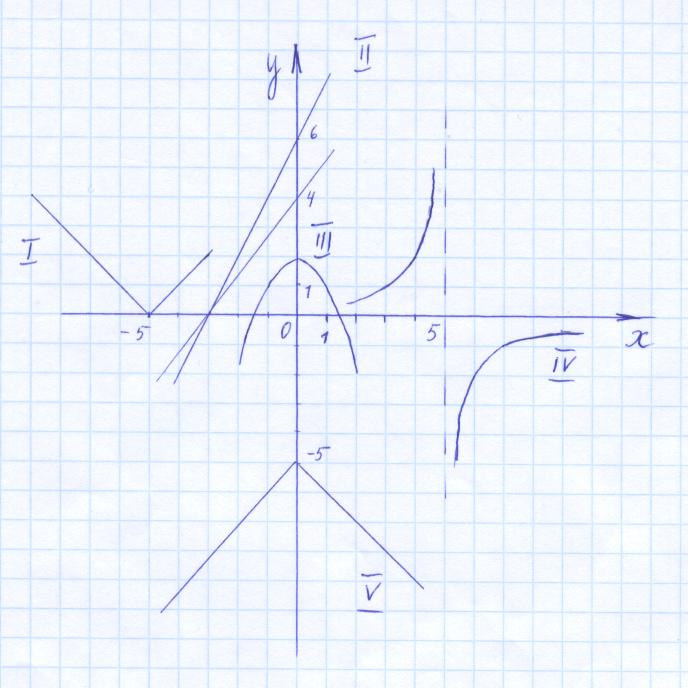 II
y
6
4
I
III
1
-5
0
1
5
x
IV
-5
V